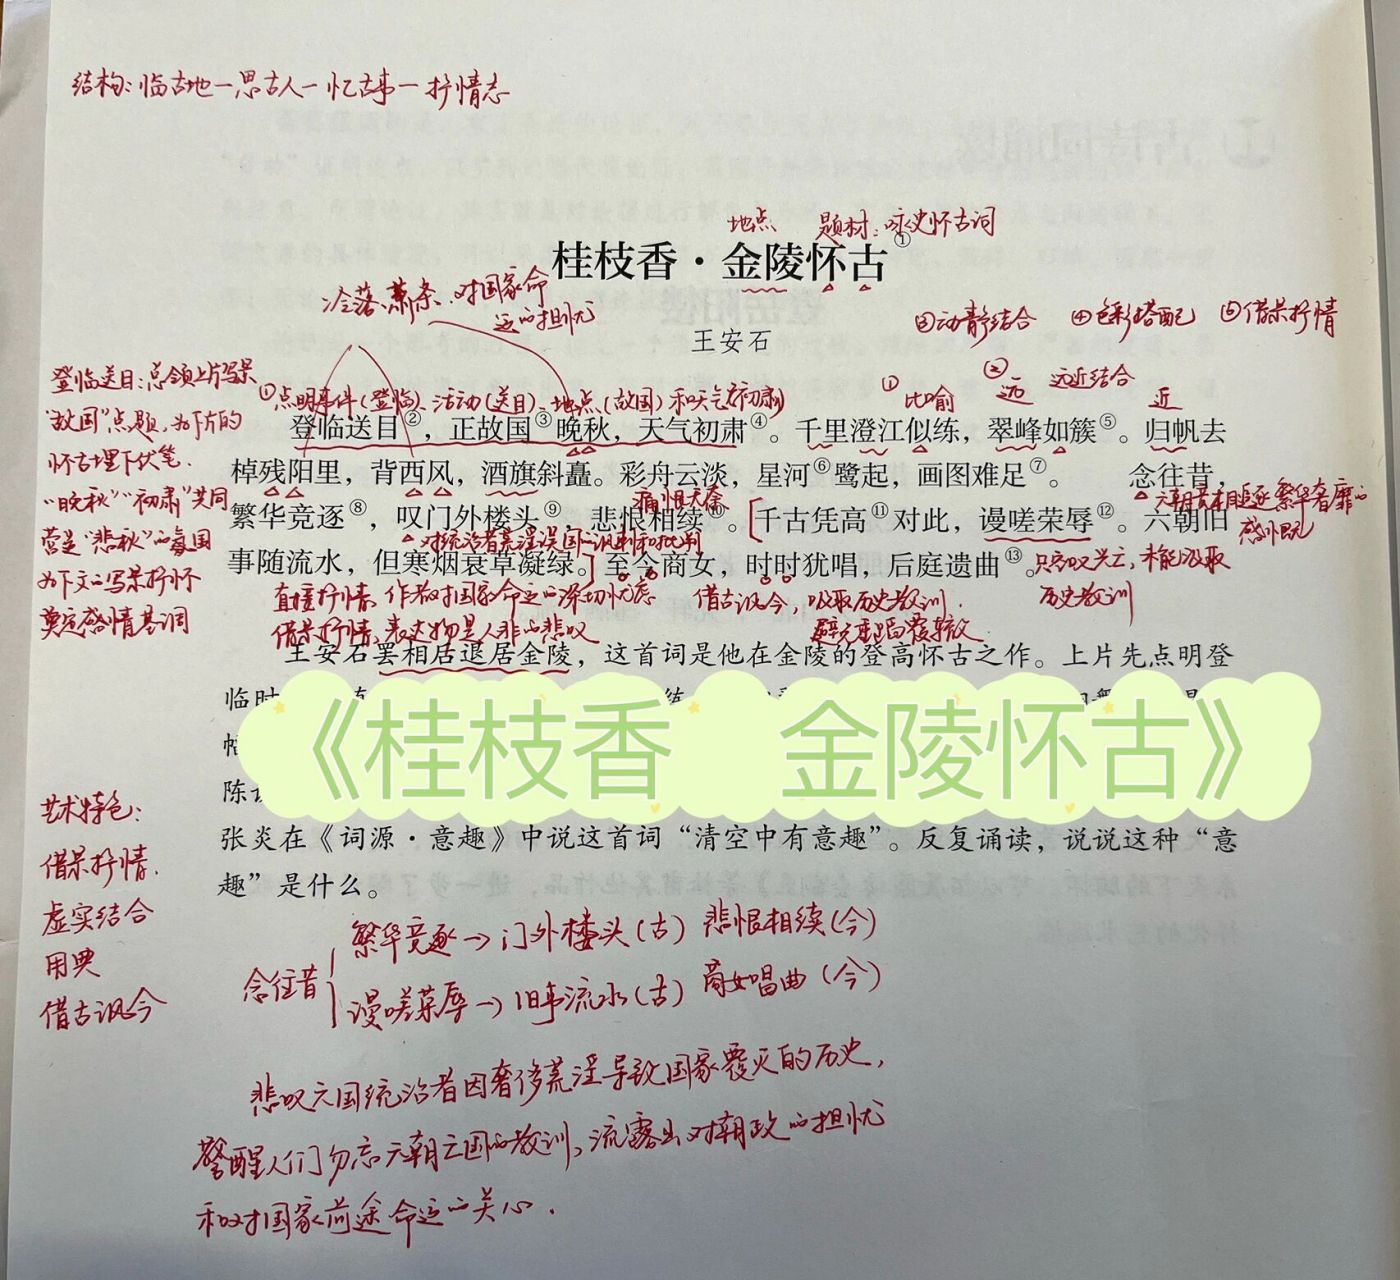 结构：临古地－思古人－忆古事－抒情志
地点 题材：咏史怀古词
桂枝香·金陵怀古①
冷落、萧条、对国家命
运的担忧
王安石
③动静结合 ④色彩搭配 ⑤借景抒情
登临送目：总领上片写景
"故国"点题，为下片的
怀古埋下伏笔．
"晚秋""初肃"共同
营造"悲秋"的氛围
为下文的写景抒怀
奠定感情基调
①点明事件(登临)、活动(送目)、地点(故国)和天气(初肃)
①比喻 ②远 远近结合 近
登临送目②，正故国③晚秋，天气初肃④。千里澄江似练，翠峰如簇⑤。归帆去
棹残阳里，背西风，酒旗斜矗。彩舟云淡，星河⑥鹭起，画图难足⑦。 念往昔，
痛恨无奈
六朝君主相追逐繁华奢靡的
感慨
繁华竞逐⑧，叹门外楼头⑨，悲恨相续⑩。千古凭高⑪对此，谩嗟荣辱⑫。六朝旧
对统治者荒淫误国的讽刺和批判
事随流水，但寒烟衰草凝绿。至今商女，时时犹唱，后庭遗曲⑬。
只空叹兴亡，未能汲取
历史教训
直接抒情、作者对国家命运的深切忧虑
借古讽今，吸取历史教训．
避免重蹈覆辙
借景抒情、表达物是人非的悲叹
王安石罢相后退居金陵，这首词是他在金陵的登高怀古之作。上片先点明登
临时
《桂枝香 金陵怀古》
陈
张炎在《词源·意趣》中说这首词"清空中有意趣"。反复诵读，说说这种"意
趣"是什么。
艺术特色：
借景抒情．
虚实结合
用典
借古讽今
念往昔
繁华竞逐→门外楼头(古) 悲恨相续(今)
谩嗟荣辱→旧事流水(古) 商女唱曲(今)
悲叹六国统治者因奢侈荒淫导致国家覆灭的历史，
警醒人们勿忘六朝亡国的教训，流露出对朝政的担忧
和对国家前途命运的关心．